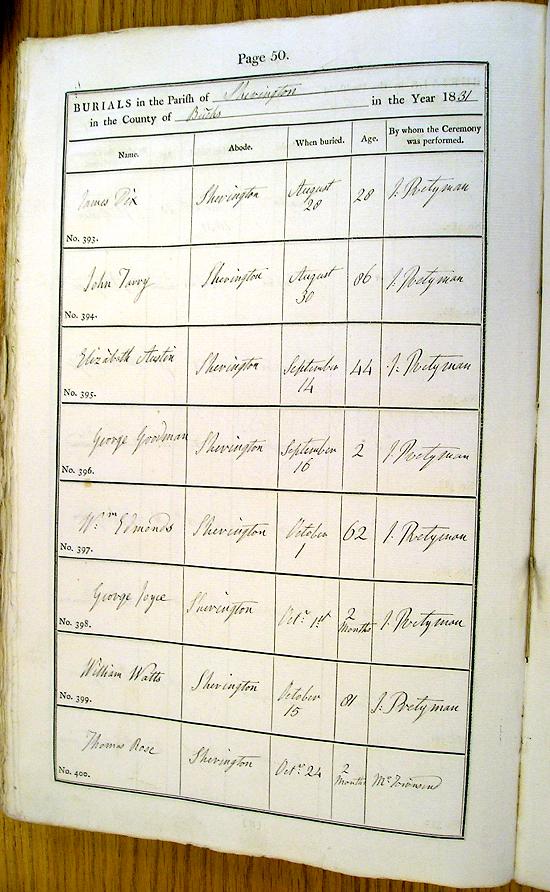 Page 50.
BURIALS in the Parish of Sherington
in the County of Bucks
in the Year 1831
Name. Abode. When buried. Age. By whom the Ceremony was performed.
James Pix Sherington August 28 28 J. Pretyman
No. 393.
John Tarry Sherington August 30 86 J. Pretyman
No. 394.
Elizabeth Austin Sherington September 14 44 J. Pretyman
No. 395.
George Goodman Sherington September 16 2 J. Pretyman
No. 396.
Wm Edmonds Sherington October 1 62 J. Pretyman
No. 397.
George Joyce Sherington Octr 1st 2 Months J. Pretyman
No. 398.
William Watts Sherington October 15 81 J. Pretyman
No. 399.
Thomas Rose Sherington Octr 24 2 Months Mr Townsend
No. 400.